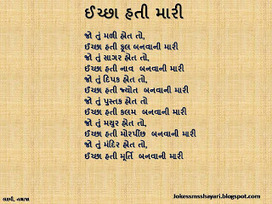 ઈચ્છા હતી મારી
જો તું મળી હોત તો,
ઈચ્છા હતી ફૂલ બનવાની મારી
જો તું સાગર હોત તો,
ઈચ્છા હતી નાવ બનવાની મારી
જો તું દિપક હોત તો,
ઈચ્છા હતી જ્યોત બનવાની મારી
જો તું પુસ્તક હોત તો
ઈચ્છા હતી કલમ બનવાની મારી
જો તું મયૂર હોત તો,
ઈચ્છા હતી મોરપીંછ બનવાની મારી
જો તું મંદિર હોત તો,
ઈચ્છા હતી મૂર્તિ બનવાની મારી
Jokessmsshayari.blogspot.com